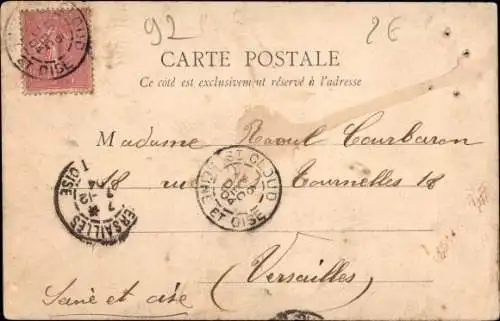 92
2€
CARTE POSTALE
Ce côté est exclusivement réservé à l'adresse
ST CLOUD
ET OISE
Madame Raoul Courbaron
18 rue Tournelles 18
SEINE ST CLOUD
ET OISE
VERSAILLES
OISE
Versailles
Seine et oise